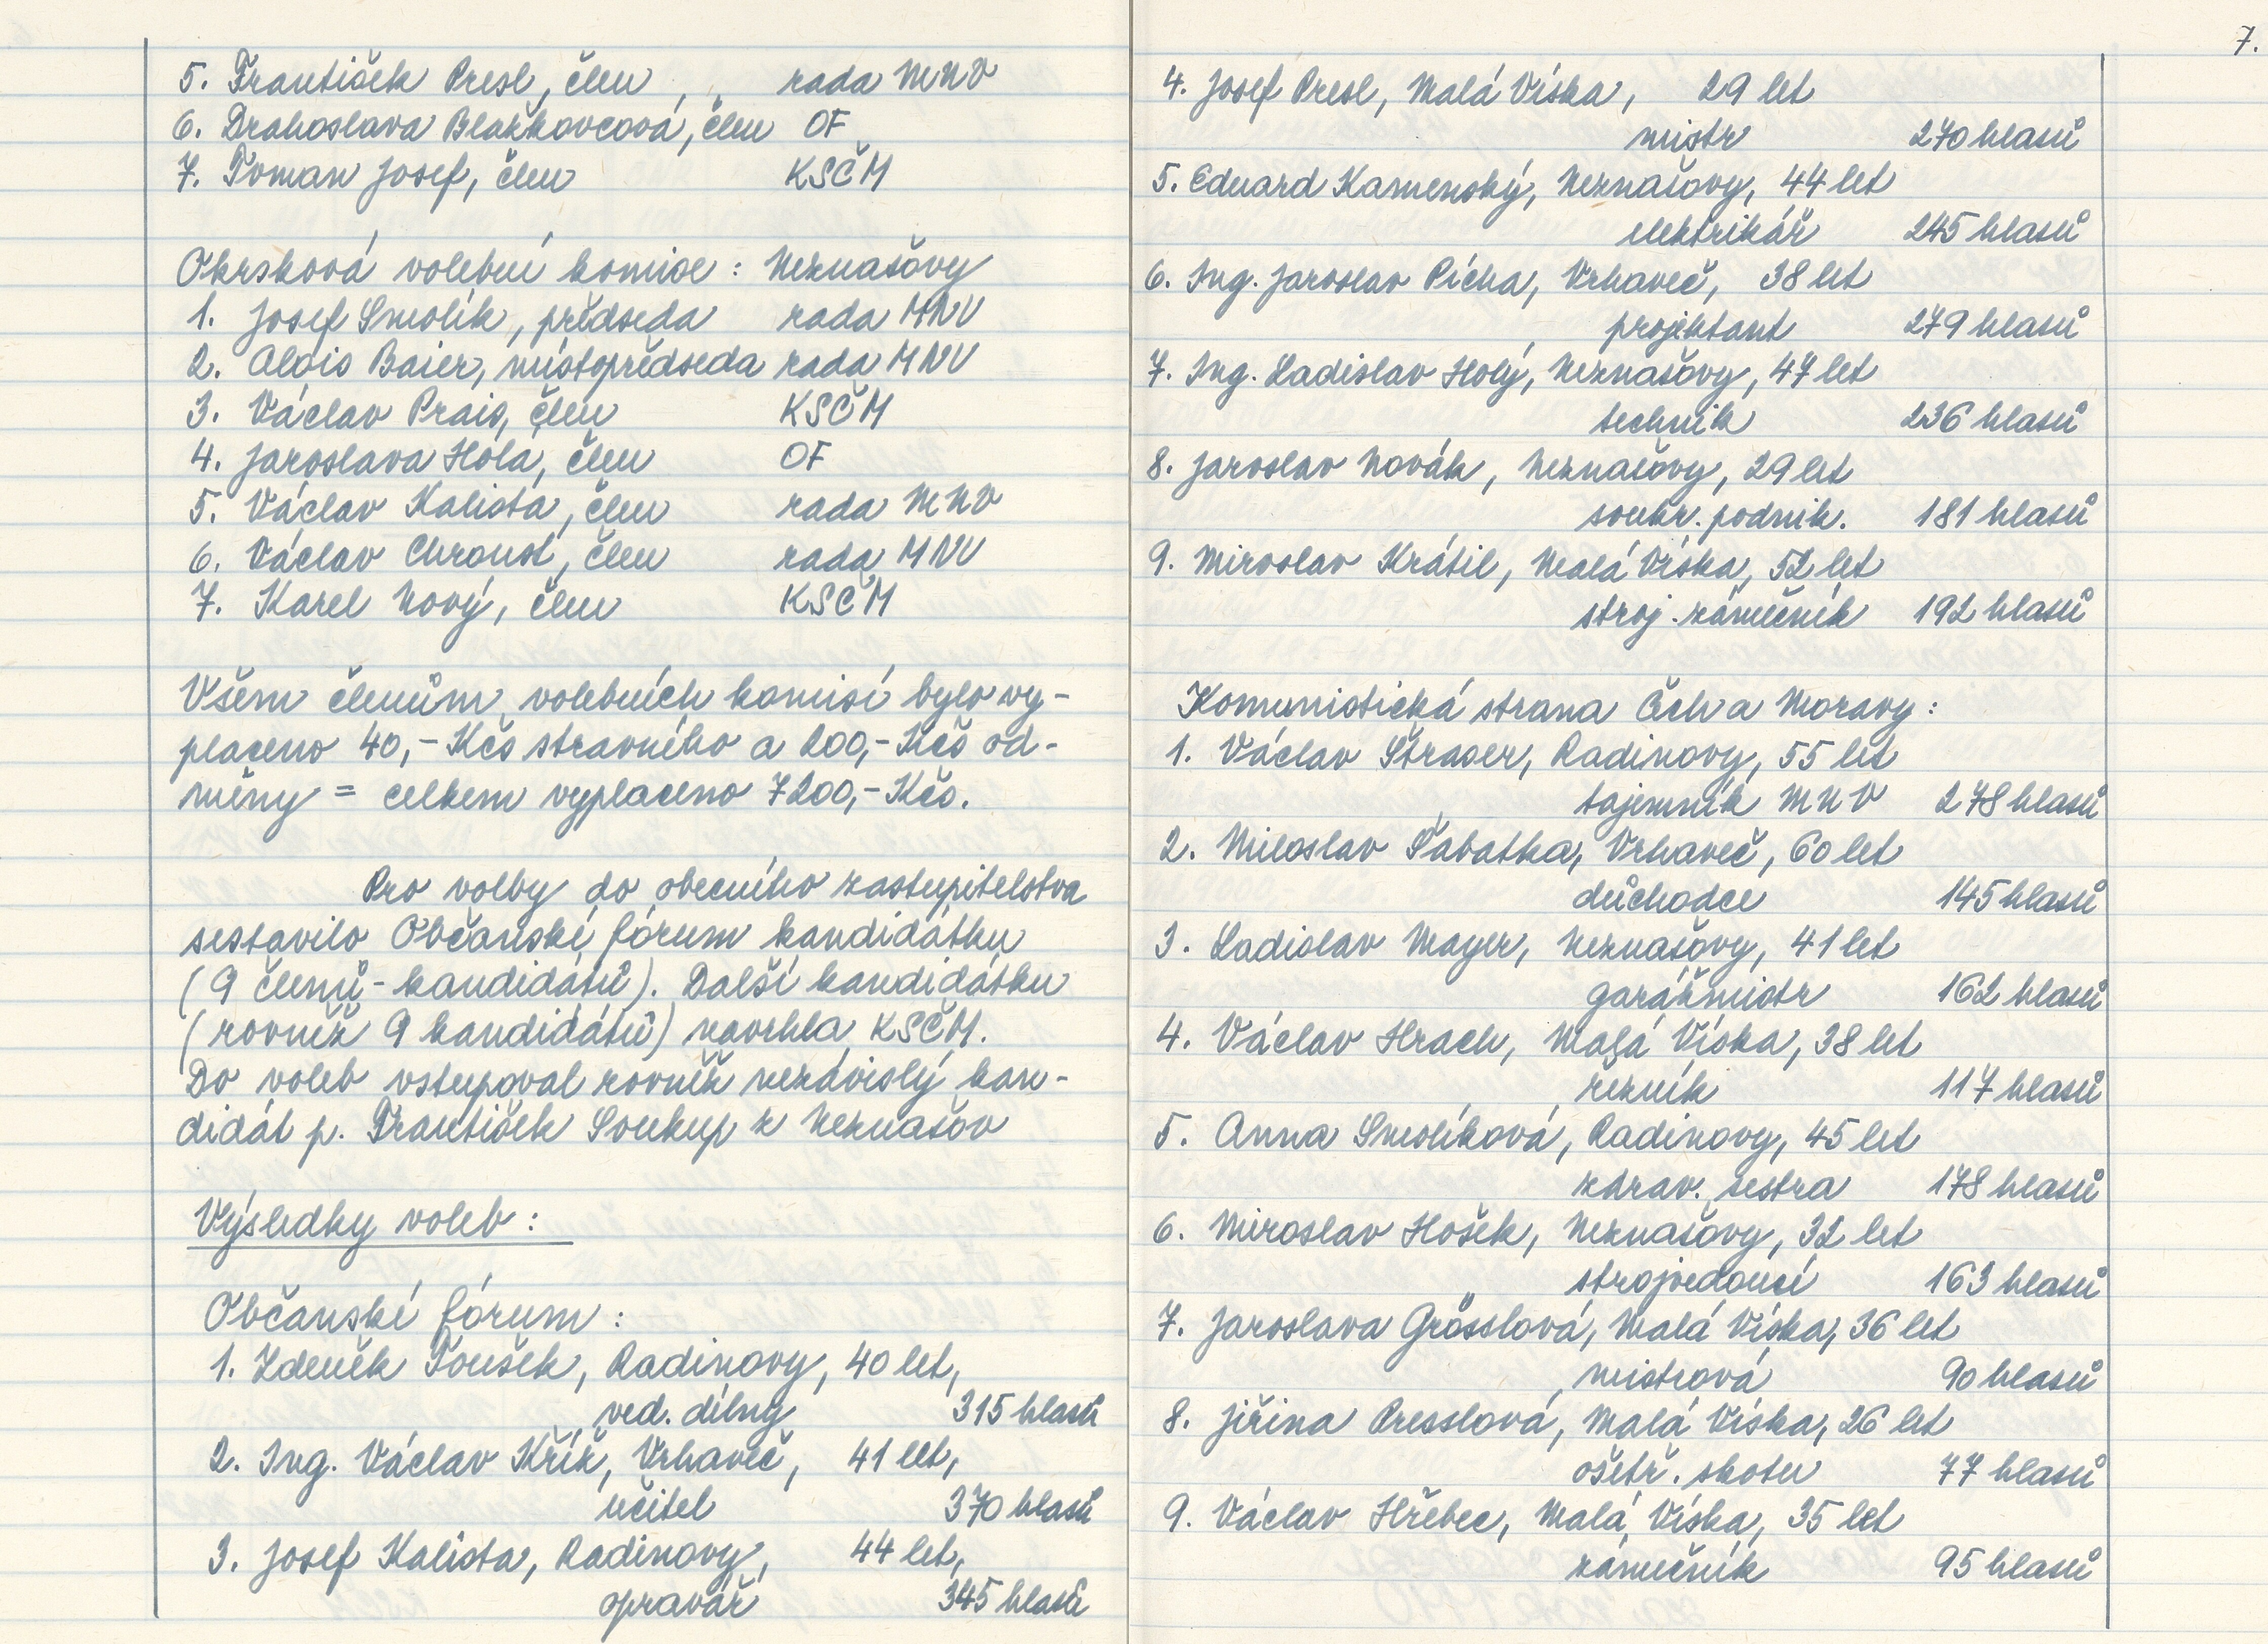 5. František Presl, člen rada MNV
6. Drahoslava Blažkovcová, člen OF
7. Toman Josef, člen KSČM
Okrsková volební komise: Neznašovy
1. Josef Smolík, předseda rada MNV
2. Alois Baier, místopředseda rada MNV
3. Václav Prais, člen KSČM
4. Jaroslava Holá, člen OF
5. Václav Kalista, člen rada MNV
6. Václav Chroust, člen rada MNV
7. Karel Nový, člen KSČM
Všem členům volebních komisí bylo vy-
placeno 40,- Kčs stravného a 200,- Kčs od-
měny = celkem vyplaceno 7200,- Kčs.
Pro volby do obecního zastupitelstva
sestavilo Občanské fórum kandidátku
(9 členů - kandidátů). Další kandidátku
(rovněž 9 kandidátů) navrhla KSČM.
Do voleb vstupoval rovněž nezávislý kan-
didát p. František Soukup z Neznašov
Výsledky voleb:
Občanské fórum:
1. Zdeněk Toušek, Radinovy, 40 let,
ved. dílny 315 hlasů
2. Ing. Václav Kříž, Vrhaveč, 41 let,
učitel 370 hlasů
3. Josef Kalista, Radinovy, 44 let,
opravář 345 hlasů
7.
4. Josef Presl, Malá Víska, 29 let
mistr 270 hlasů
5. Eduard Kamenský, Neznašovy, 44 let
elektrikář 245 hlasů
6. Ing. Jaroslav Pícha, Vrhaveč, 38 let
projektant 279 hlasů
7. Ing. Ladislav Holý, Neznašovy, 47 let
technik 236 hlasů
8. Jaroslav Novák, Neznašovy, 29 let
soukr. podnik. 181 hlasů
9. Miroslav Krátil, Malá Víska, 52 let
stroj. zámečník 192 hlasů
Komunistická strana Čech a Moravy:
1. Václav Štraser, Radinovy, 55 let
tajemník MNV 278 hlasů
2. Miloslav Šabatka, Vrhaveč, 60 let
důchodce 145 hlasů
3. Ladislav Mayer, Neznašovy, 41 let
garážmistr 162 hlasů
4. Václav Hrach, Malá Víska, 38 let
řezník 117 hlasů
5. Anna Smolíková, Radinovy, 45 let
zdrav. sestra 178 hlasů
6. Miroslav Hošek, Neznašovy, 32 let
strojvedoucí 163 hlasů
7. Jaroslava Grösslová, Malá Víska, 36 let
mistrová 90 hlasů
8. Jiřina Presslová, Malá Víska, 26 let
ošetř. skotu 77 hlasů
9. Václav Hřebec, Malá Víska, 35 let
zámečník 95 hlasů